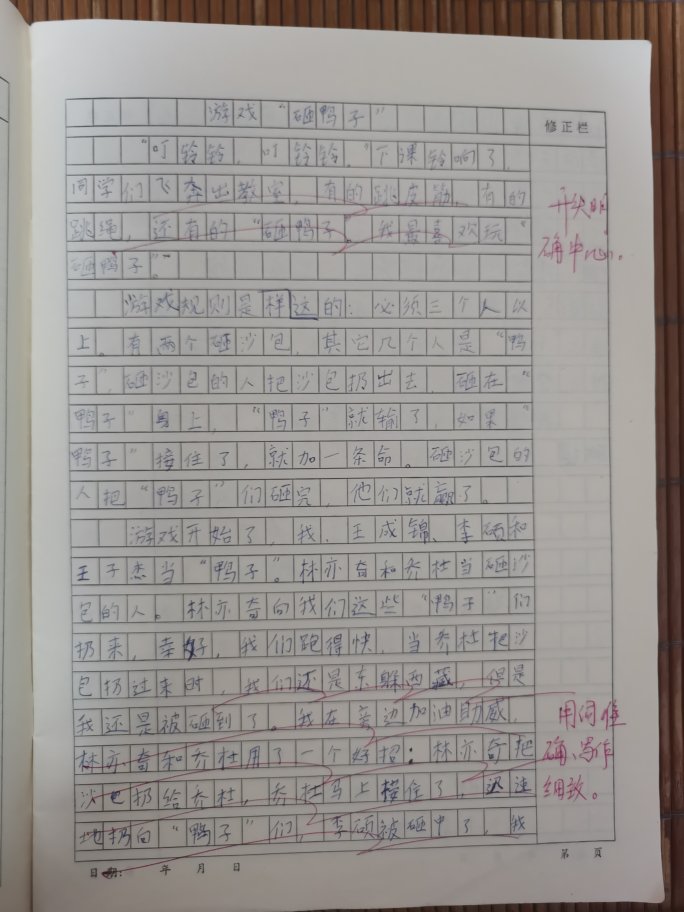 游戏“砸鸭子”
修正栏
“叮铃铃，叮铃铃。”下课铃响了，
同学们飞奔出教室，有的跳皮筋，有的
跳绳，还有的“砸鸭子”。我最喜欢玩“
砸鸭子”。
开头明
确中心。
游戏规则是样这的：必须三个人以
上。有两个砸沙包，其它几个人是“鸭
子”，砸沙包的人把沙包扔出去，砸在“
鸭子”身上，“鸭子”就输了，如果“
鸭子”接住了，就加一条命。砸沙包的
人把“鸭子”们砸完，他们就赢了。
游戏开始了，我、王成锦、李硕和
王子杰当“鸭子”。林亦奇和乔杜当砸沙
包的人。林亦奇向我们这些“鸭子”们
扔来，幸好，我们跑得快，当乔杜把沙
包扔过来时，我们还是东躲西藏，但是
我还是被砸到了。我在旁边加油助威，
林亦奇和乔杜用了一个好招：林亦奇把
沙包扔给乔杜，乔杜马上接住了，迅速
地扔向“鸭子”们，李硕被砸中了，我
用词准
确、写作
细致。
日期： 年 月 日
第 页